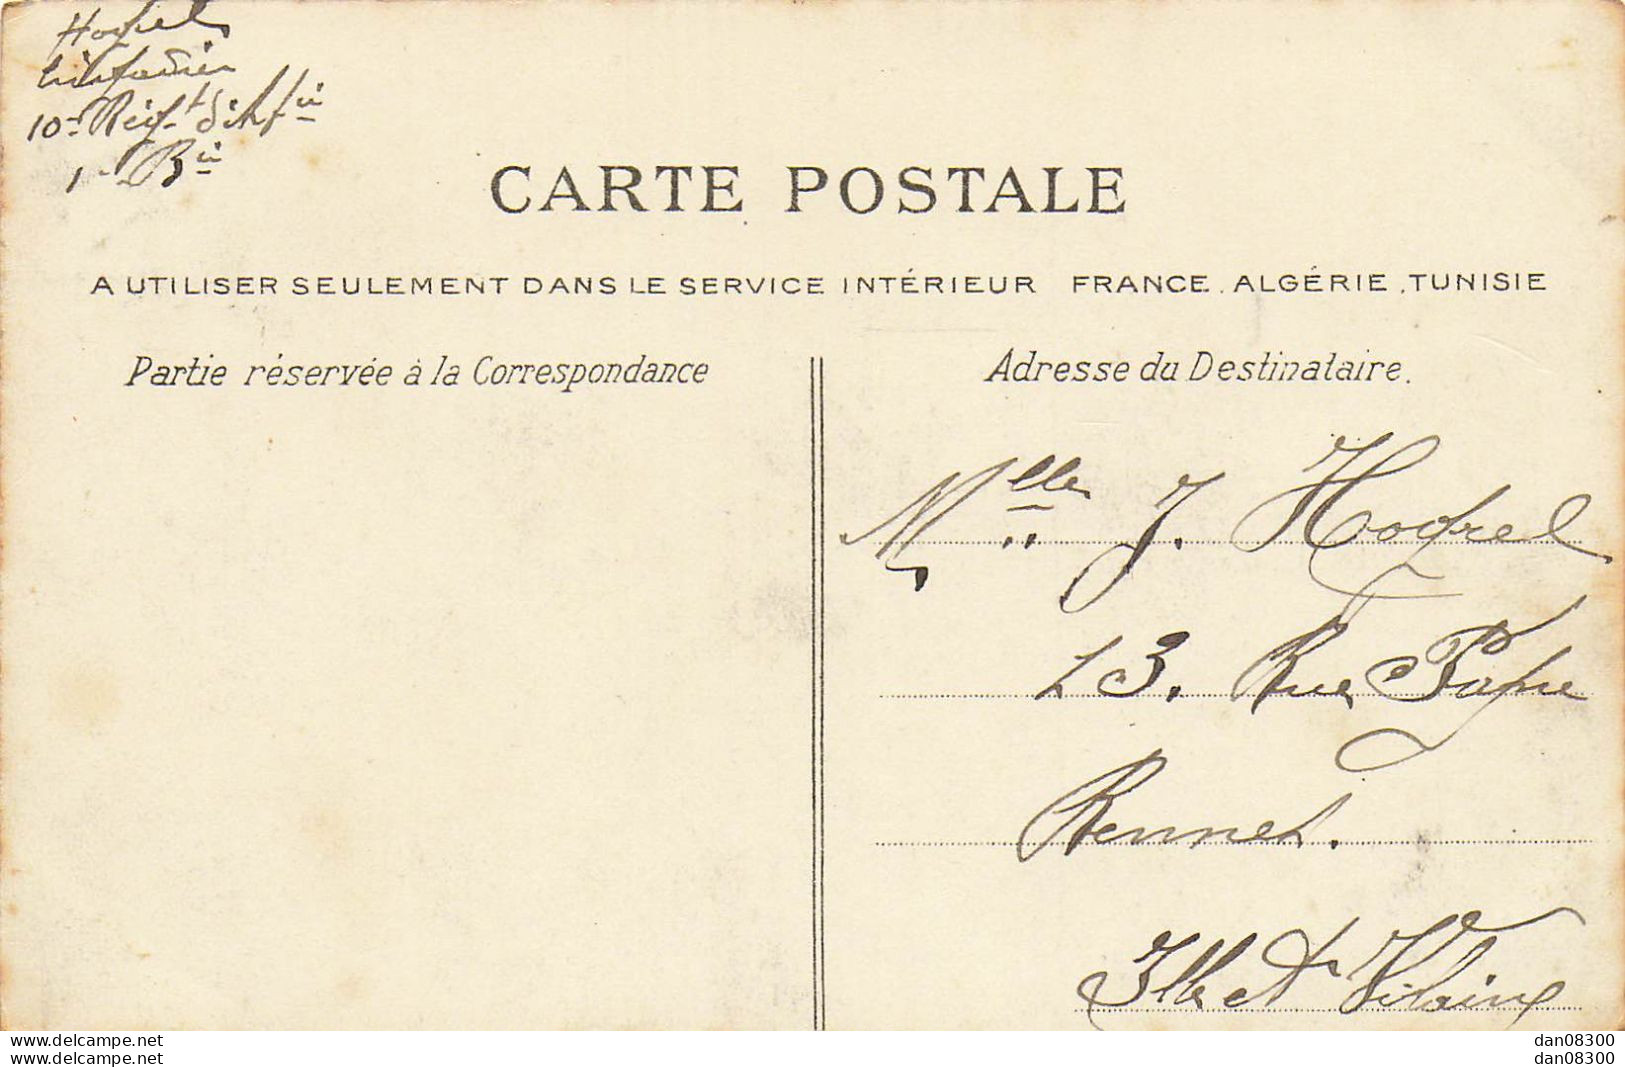 10e Régt d'Infie
1e Bie
CARTE POSTALE
A UTILISER SEULEMENT DANS LE SERVICE INTÉRIEUR FRANCE. ALGÉRIE. TUNISIE
Partie réservée à la Correspondance
Adresse du Destinataire.
Mlle J.
23. Rue
Rennes.
Ille et Vilaine
www.delcampe.net
www.delcampe.net
dan08300
dan08300